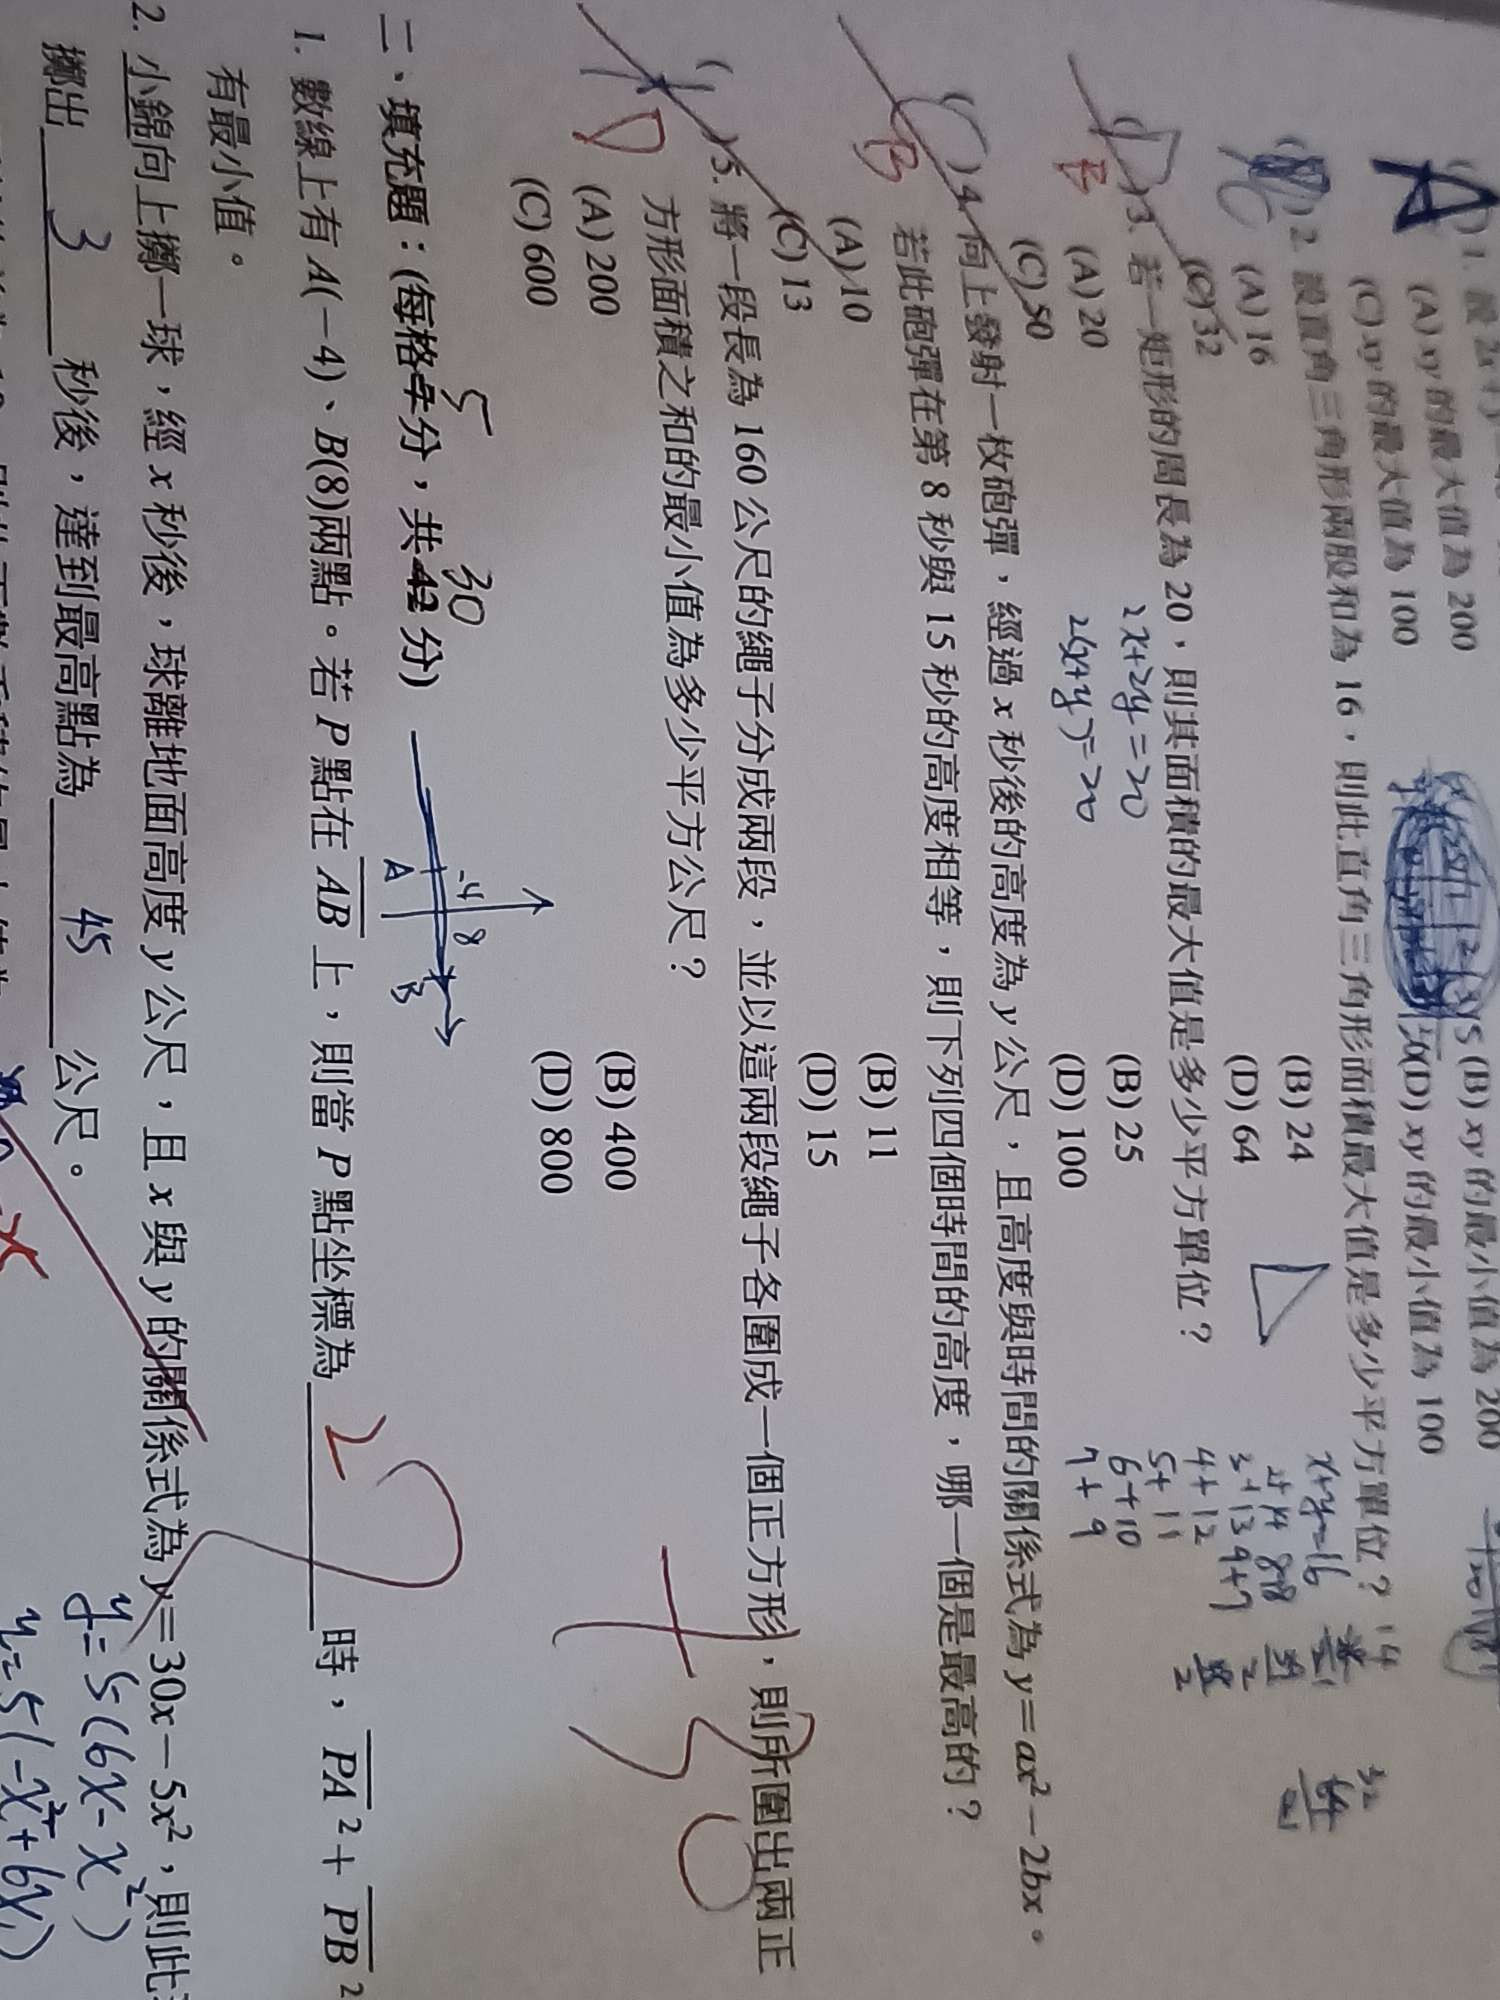 1. 設 2x+y
(A) xy 的最大值為 200 (B) xy 的最小值為 200
(C) xy 的最大值為 100 (D) xy 的最小值為 100
A
2. 設直角三角形兩股和為 16，則此直角三角形面積最大值是多少平方單位？
(A) 16 (B) 24
(C) 32 (D) 64
C
x+y=16
2+14 8+8
3+13 9+7
4+12
5+11
6+10
7+9
3. 若一矩形的周長為 20，則其面積的最大值是多少平方單位？
(A) 20 (B) 25
(C) 50 (D) 100
B
2x+2y=20
2(x+y)=20
4. 向上發射一枚砲彈，經過 x 秒後的高度為 y 公尺，且高度與時間的關係式為 y＝ax²－2bx。
若此砲彈在第 8 秒與 15 秒的高度相等，則下列四個時間的高度，哪一個是最高的？
(A) 10 (B) 11
(C) 13 (D) 15
B
5. 將一段長為 160 公尺的繩子分成兩段，並以這兩段繩子各圍成一個正方形，則所圍出兩正
方形面積之和的最小值為多少平方公尺？
(A) 200 (B) 400
(C) 600 (D) 800
D
+30
二、填充題：(每格 5 分，共 30 分)
-4 8
A B
1. 數線上有 A(－4)、B(8)兩點。若 P 點在 AB 上，則當 P 點坐標為 2 時，PA²＋PB²
有最小值。
2. 小錦向上擲一球，經 x 秒後，球離地面高度 y 公尺，且 x 與 y 的關係式為 y＝30x－5x²，則此
擲出 3 秒後，達到最高點為 45 公尺。
y=5(6x-x²)
y=5(-x²+6x)